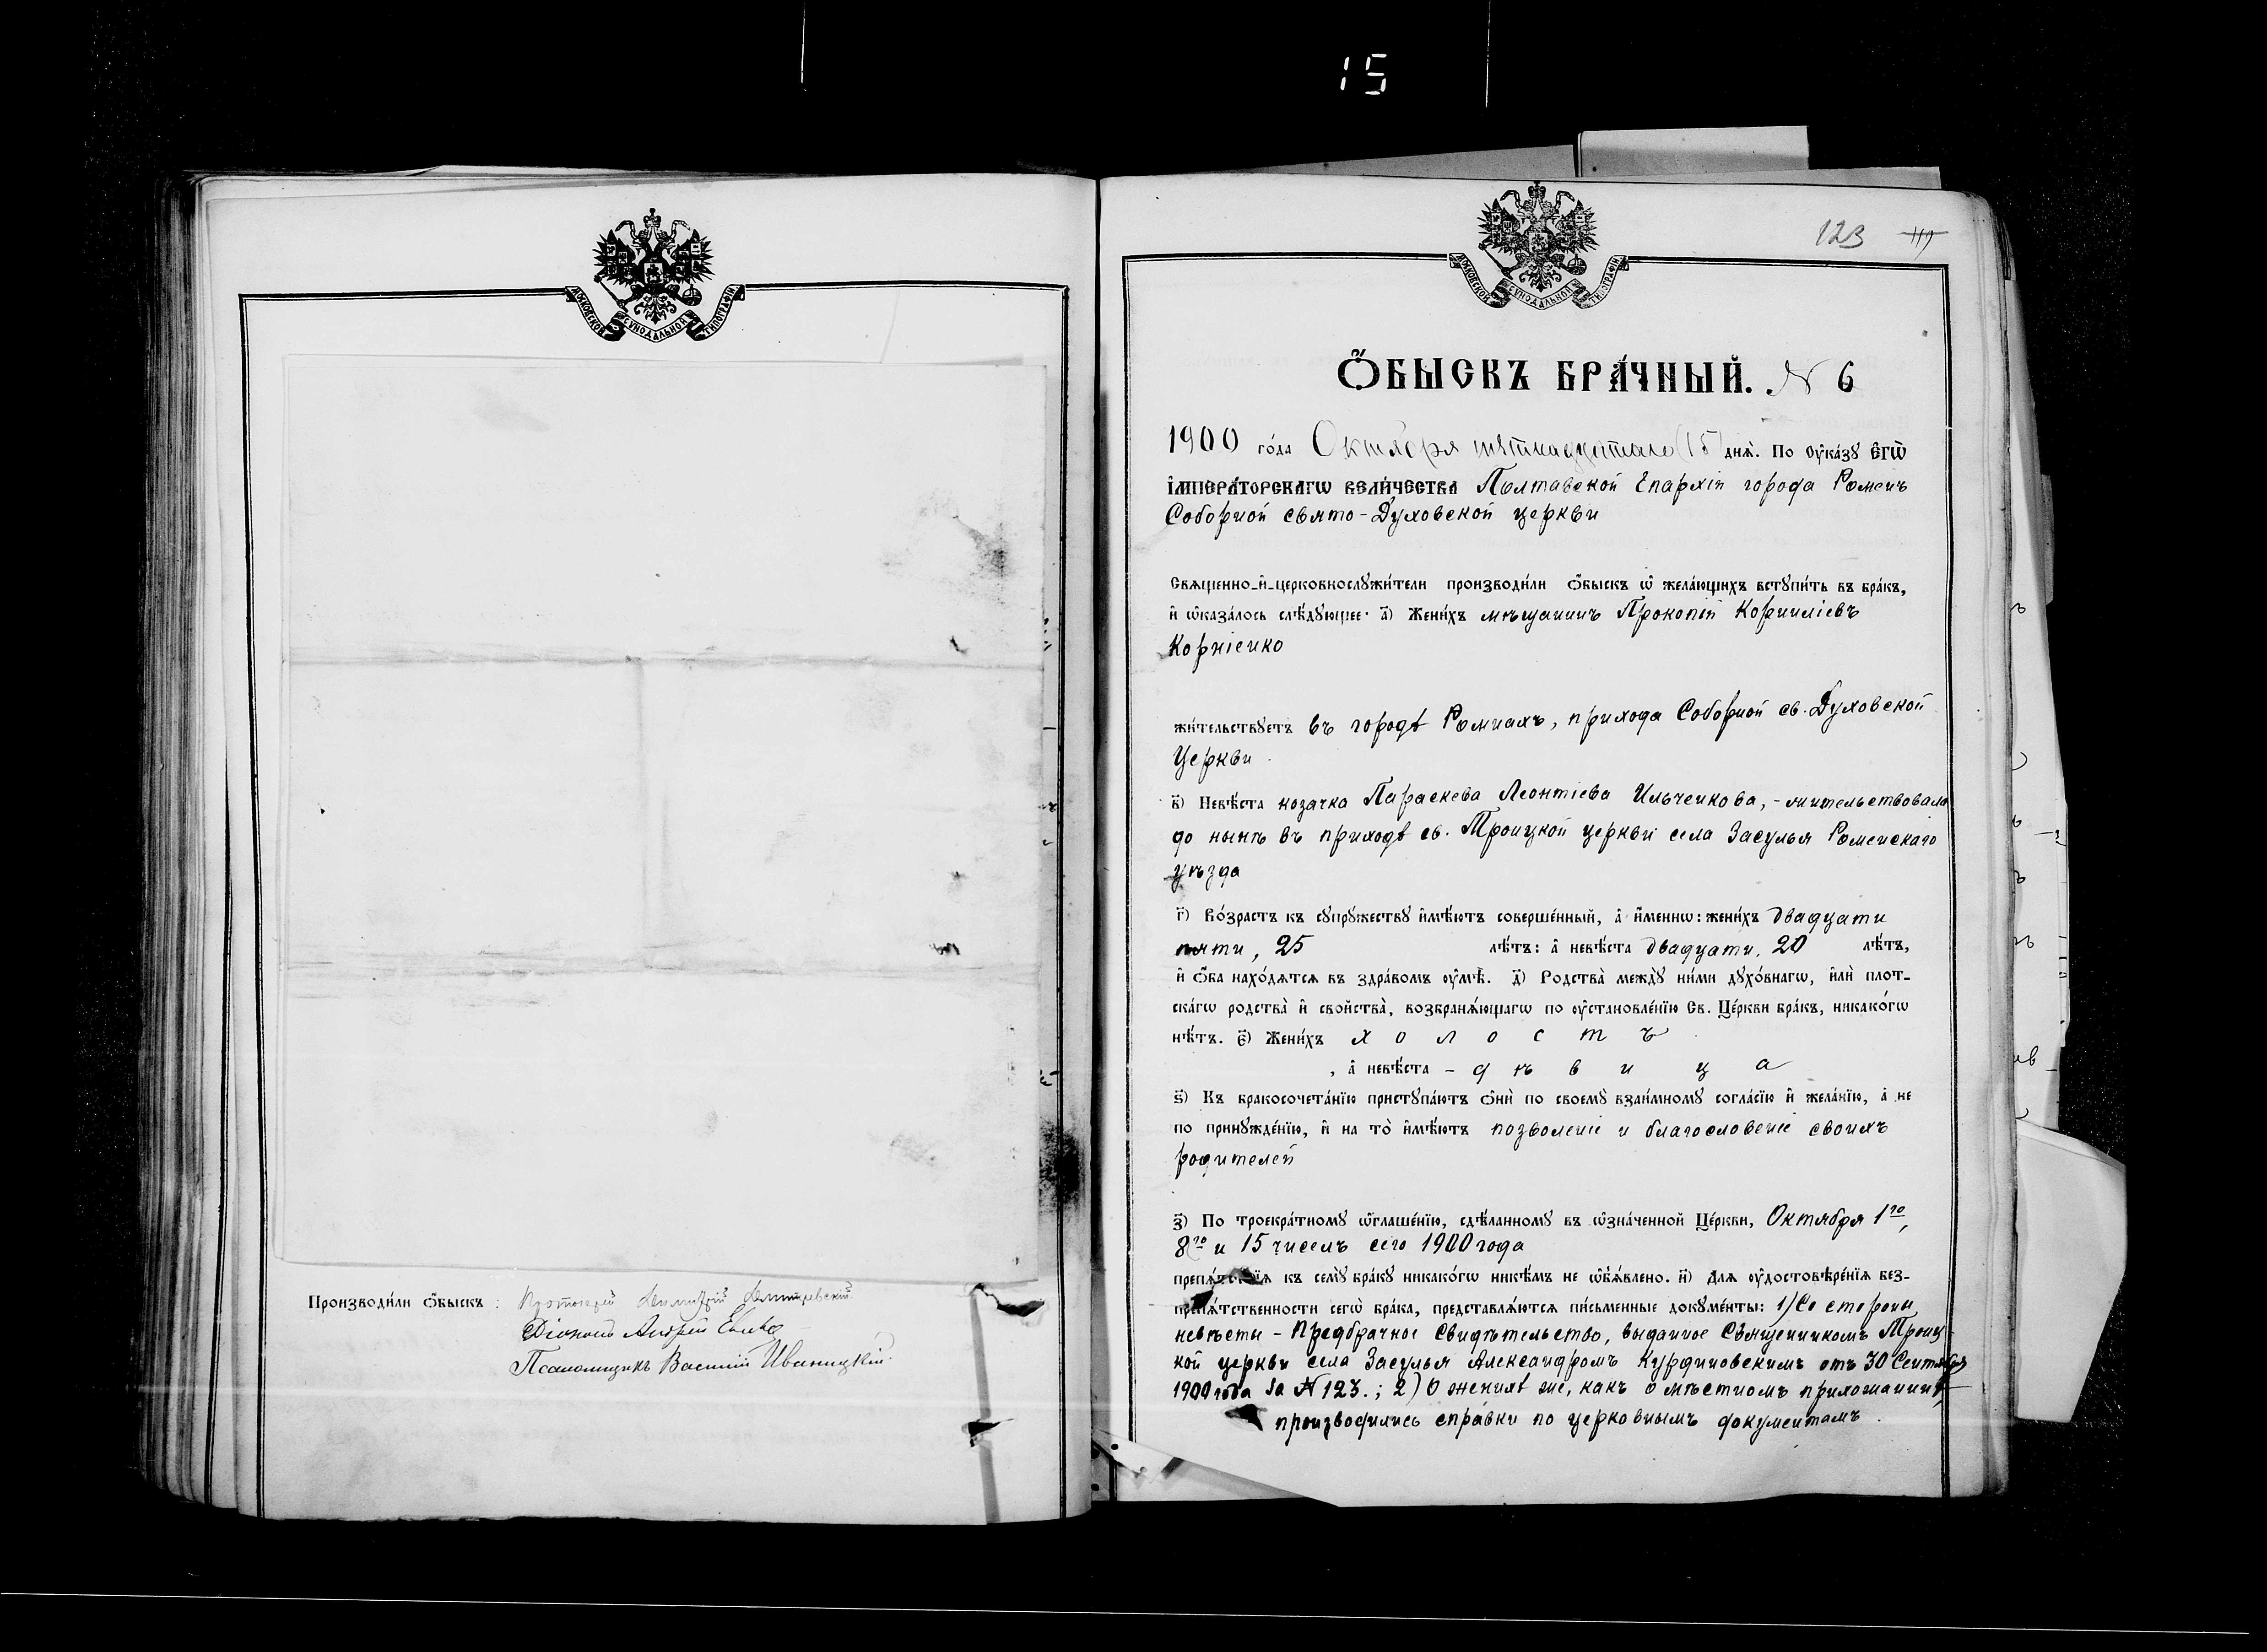 15
МОСКОВСКОЙ СѴНОДАЛЬНОЙ ТИПОГРАФІИ
Производи́ли ѻ҆́быскъ: Протоіерей Димитрій
Діаконъ Андрей
Псаломщикъ Василій Иваницкій.
МОСКОВСКОЙ СѴНОДАЛЬНОЙ ТИПОГРАФІИ
123 119
Ѻ҆́БЫСКЪ БРА́ЧНЫЙ. № 6
1900 го́да Октября пятнадцатаго (15) дня̀. По ᲂу҆ка́зꙋ Є҆ГѠ̀
І҆МПЕРА́ТОРСКАГѠ ВЕЛИ́ЧЕСТВА Полтавской Епархіи города Роменъ
Соборной свято-Духовской церкви
Свѧщенно-и҆-церковнослꙋжи́тели производи́ли ѻ҆́быскъ ѡ҆ жела́ющихъ встꙋпи́ть въ бра́къ,
и҆ ѡ҆каза́лось слѣ́дꙋющее: а҃) Жени́хъ мѣщанинъ Прокопій Корниліевъ
Корніенко
жи́тельствꙋетъ въ городѣ Ромнахъ, прихода Соборной св. Духовской
Церкви.
в҃) Невѣ́ста козачка Параскева Леонтіева Ильченкова, - жительствовала
до нынѣ въ приходѣ св. Троицкой церкви села Засулья Роменскаго
уѣзда
г҃) Во́зрастъ къ сꙋпрꙋ́жествꙋ и҆мѣ́ютъ соверше́нный, а҆ и҆́меннѡ: жени́хъ двадцати
пяти, 25 лѣ́тъ: а҆ невѣ́ста двадцати, 20 лѣ́тъ,
и҆ ѻ҆́ба нахо́дѧтсѧ въ здра́вомъ ᲂу҆мѣ̀. д҃) Родства̀ междꙋ̀ ни́ми дꙋхо́внагѡ, и҆лѝ плот-
ска́гѡ родства̀ и҆ сво́йства̀, возбранѧ́ющагѡ по ᲂу҆становле́нїю Св. Це́ркви бра́къ, никако́гѡ
нѣ́тъ. є҃) Жени́хъ холостъ
, а҆ невѣ́ста - дѣвица
ѕ҃) Къ бракосочета́нїю пристꙋпа́ютъ ѻ҆нѝ по своемꙋ̀ взаи́мномꙋ согла́сїю и҆ жела́нїю, а҆ не
по принꙋжде́нїю, и҆ на то̀ и҆мѣ́ютъ позволеніе и благословеніе своихъ
родителей
з҃) По троекра́тномꙋ ѡ҆глаше́нїю, сдѣ́ланномꙋ въ ѡ҆зна́ченной Це́ркви, Октября 1го,
8го и 15 чиселъ сего 1900 года
препѧ́тствїѧ къ семꙋ̀ бра́кꙋ никако́гѡ никѣ́мъ не ѡ҆б̾ѧ́влено. и҃) Длѧ ᲂу҆достовѣре́нїѧ без-
препѧ́тственности сегѡ̀ бра́ка, представлѧ́ютсѧ пи́сьменные докꙋме́нты: 1) Со стороны
невѣсты - Предбрачное Свидѣтельство, выданное Священникомъ Троиц-
кой церкви села Засулья Александромъ Курдиновскимъ отъ 30 Сентября
1900 года за № 123.; 2) О женихѣ же, какъ о мѣстномъ прихожанинѣ,
производились справки по церковнымъ документамъ.